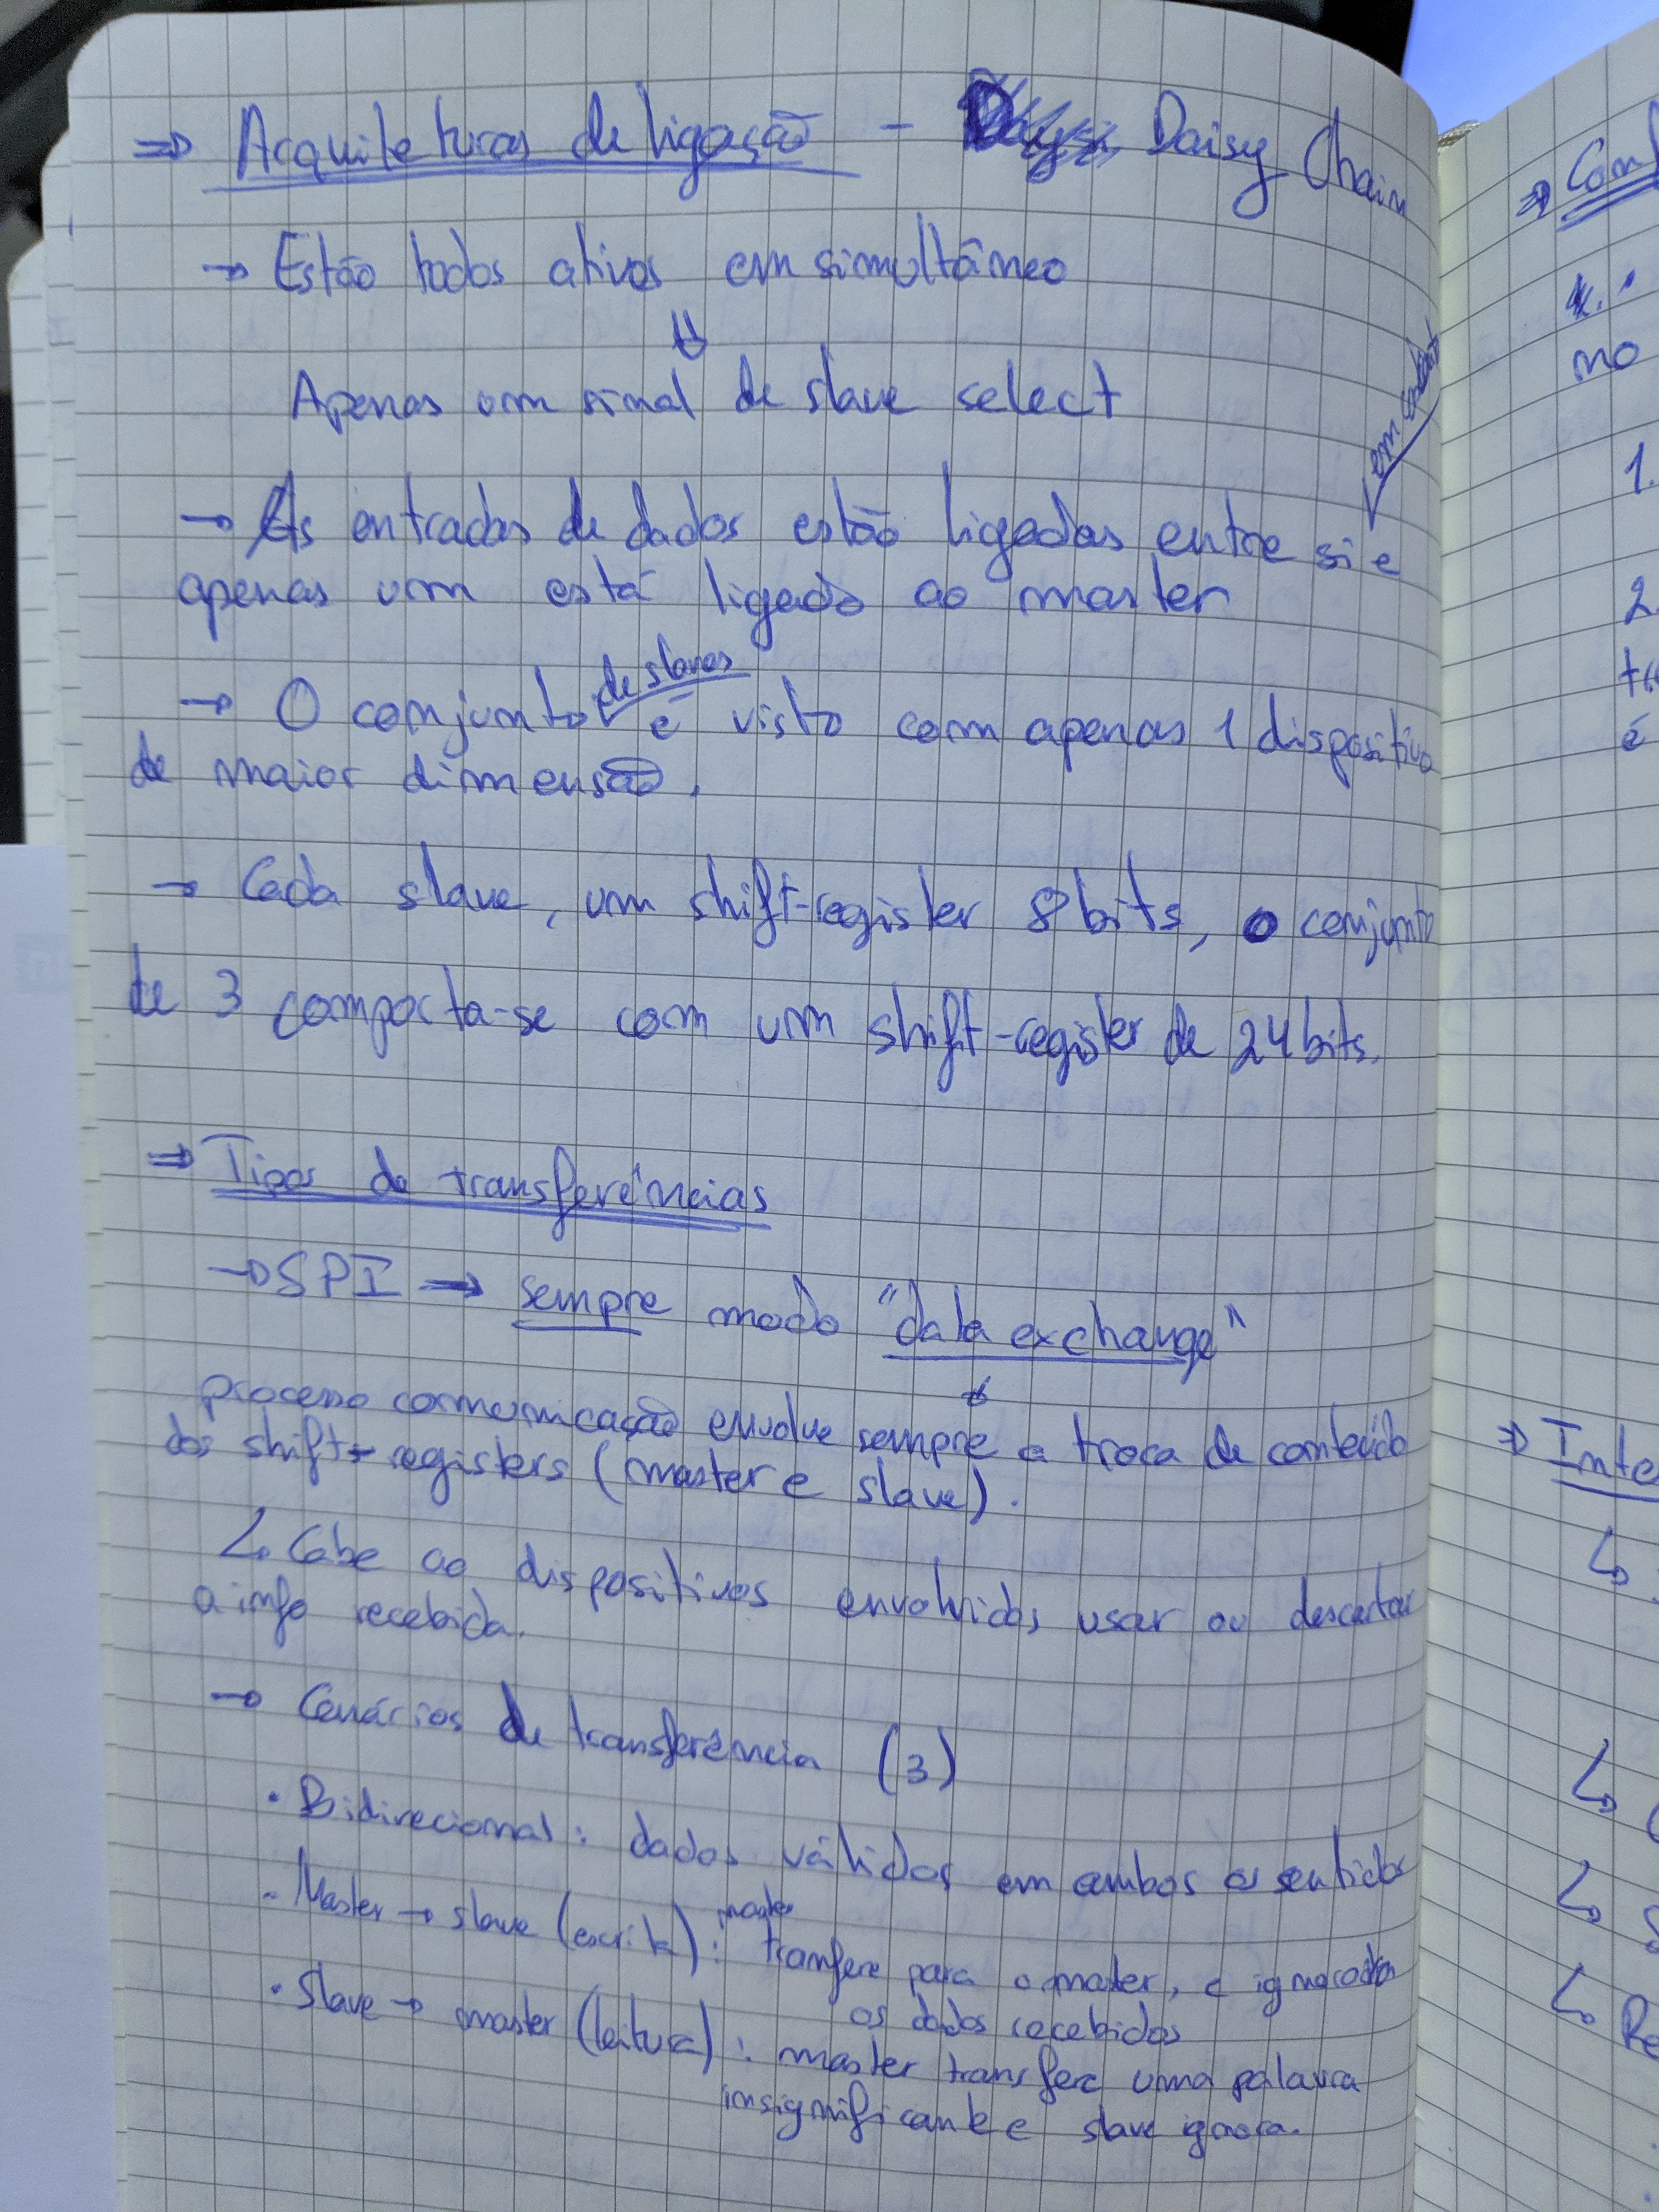 ⇒ Arquiteturas de ligação - Daisy Chain
→ Estão todos ativos em simultâneo
⇓
Apenas um sinal de slave select
→ As entradas de dados estão ligadas entre si e
em
apenas um está ligado ao master
→ O conjunto de slaves é visto com apenas 1 dispositivo
de maior dimensão.
→ Cada slave, um shift-register 8 bits, o conjunto
de 3 comporta-se com um shift-register de 24 bits.
⇒ Tipos de transferências
→ SPI → sempre modo "data exchange"
processo comunicação envolve sempre a troca de conteúdo
dos shift-registers (master e slave).
↳ Cabe ao dispositivos envolvidos usar ou descartar
a info recebida.
→ Cenários de transferência (3)
• Bidirecional: dados válidos em ambos os sentidos
- Master → slave (escrita): master transfere para o master, e ignorados
os dados recebidos
• Slave → master (leitura): master transfere uma palavra
insignificante e slave ignora.
⇒
no
1.
2.
é
⇒ Inte
↳
↳
↳
↳ Re